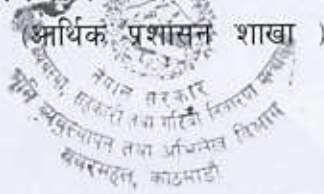 (आर्थिक प्रशासन शाखा )
नेपाल सरकार
व्यवस्था, सहकारी तथा गरिबी निवारण मन्त्रालय
भूमि व्यवस्थापन तथा अभिलेख विभाग
बबरमहल, काठमाडौं